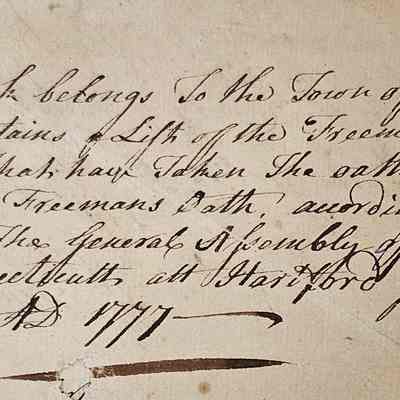 k belongs To the Town of
tains a List of the Freem
that have Taken The oath
Freemans Oath, acordin
The General Assembly of
ecticutt att Hartford
AD 1777